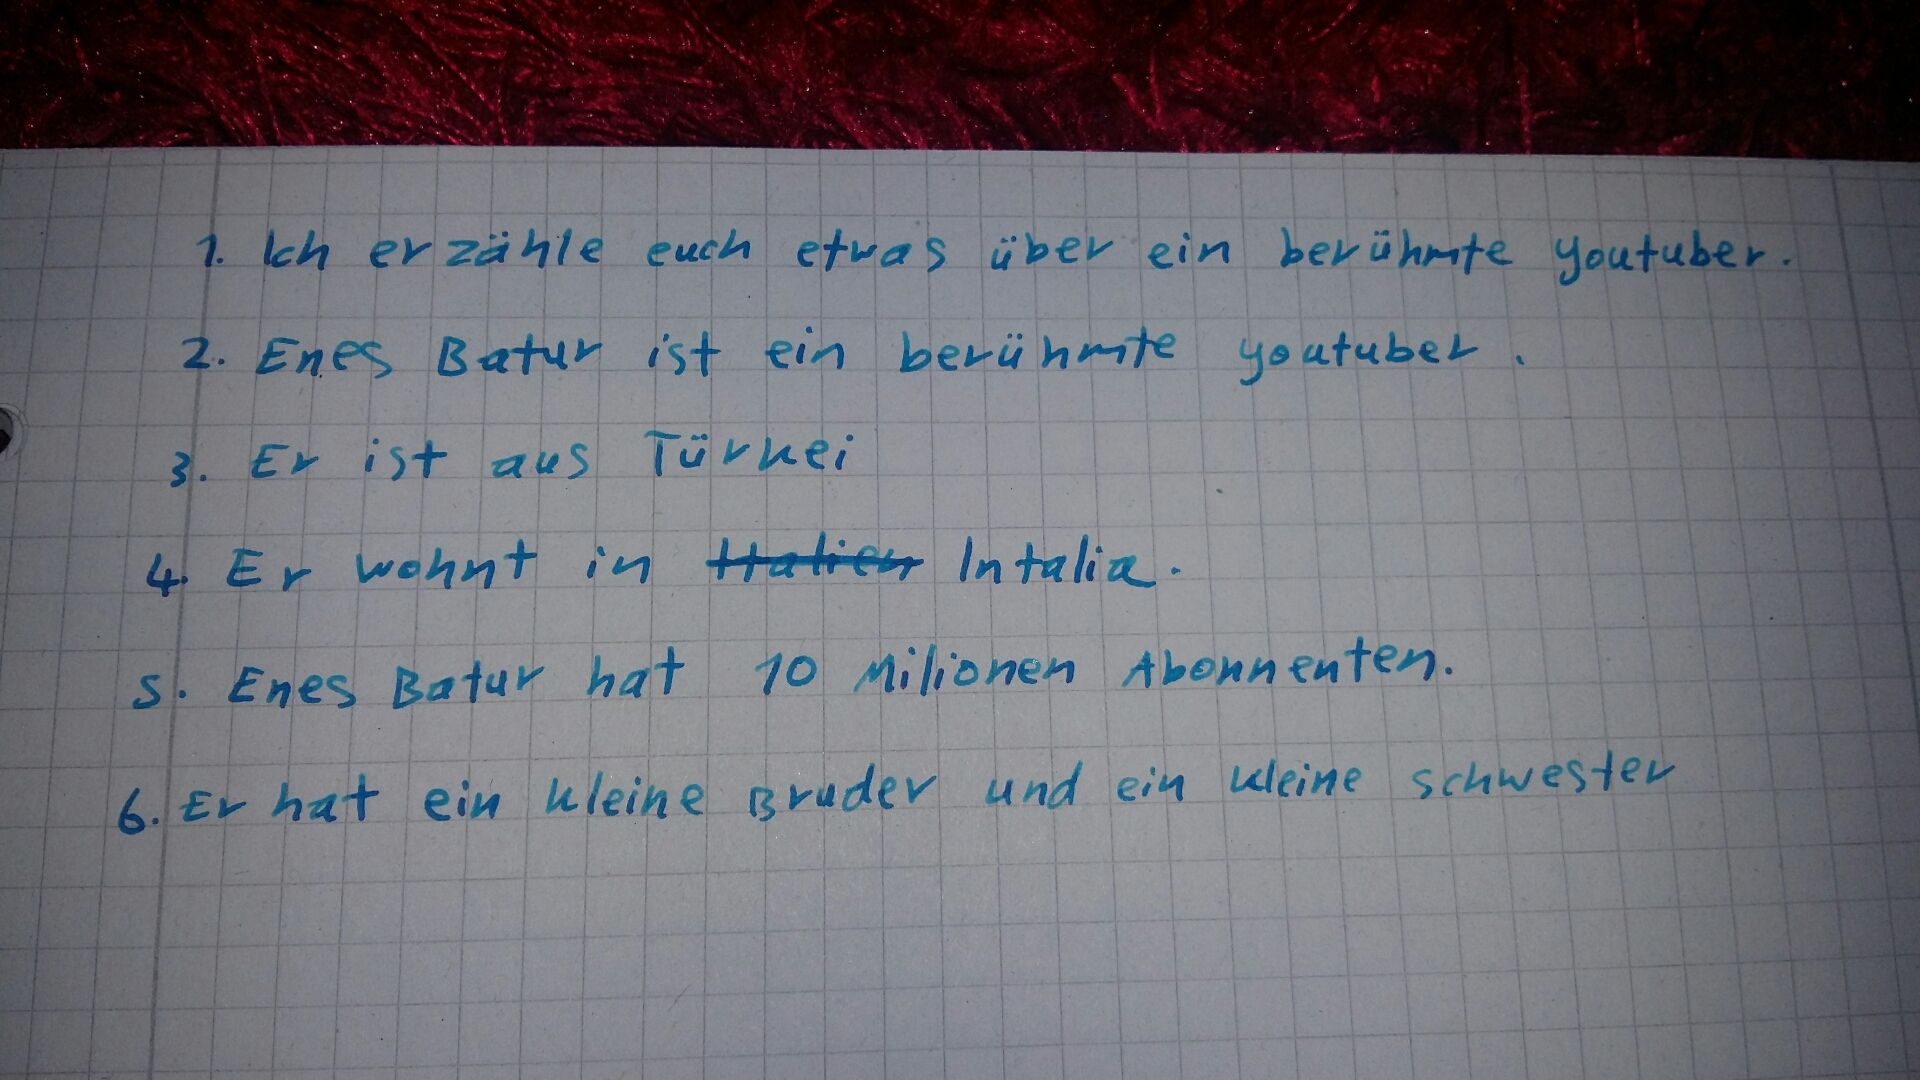 1. Ich erzähle euch etwas über ein berühmte youtuber.
2. Enes Batur ist ein berühmte youtuber.
3. Er ist aus Türkei
4. Er wohnt in Italien Intalia.
5. Enes Batur hat 10 Milionen Abonnenten.
6. Er hat ein kleine Bruder und ein kleine schwester